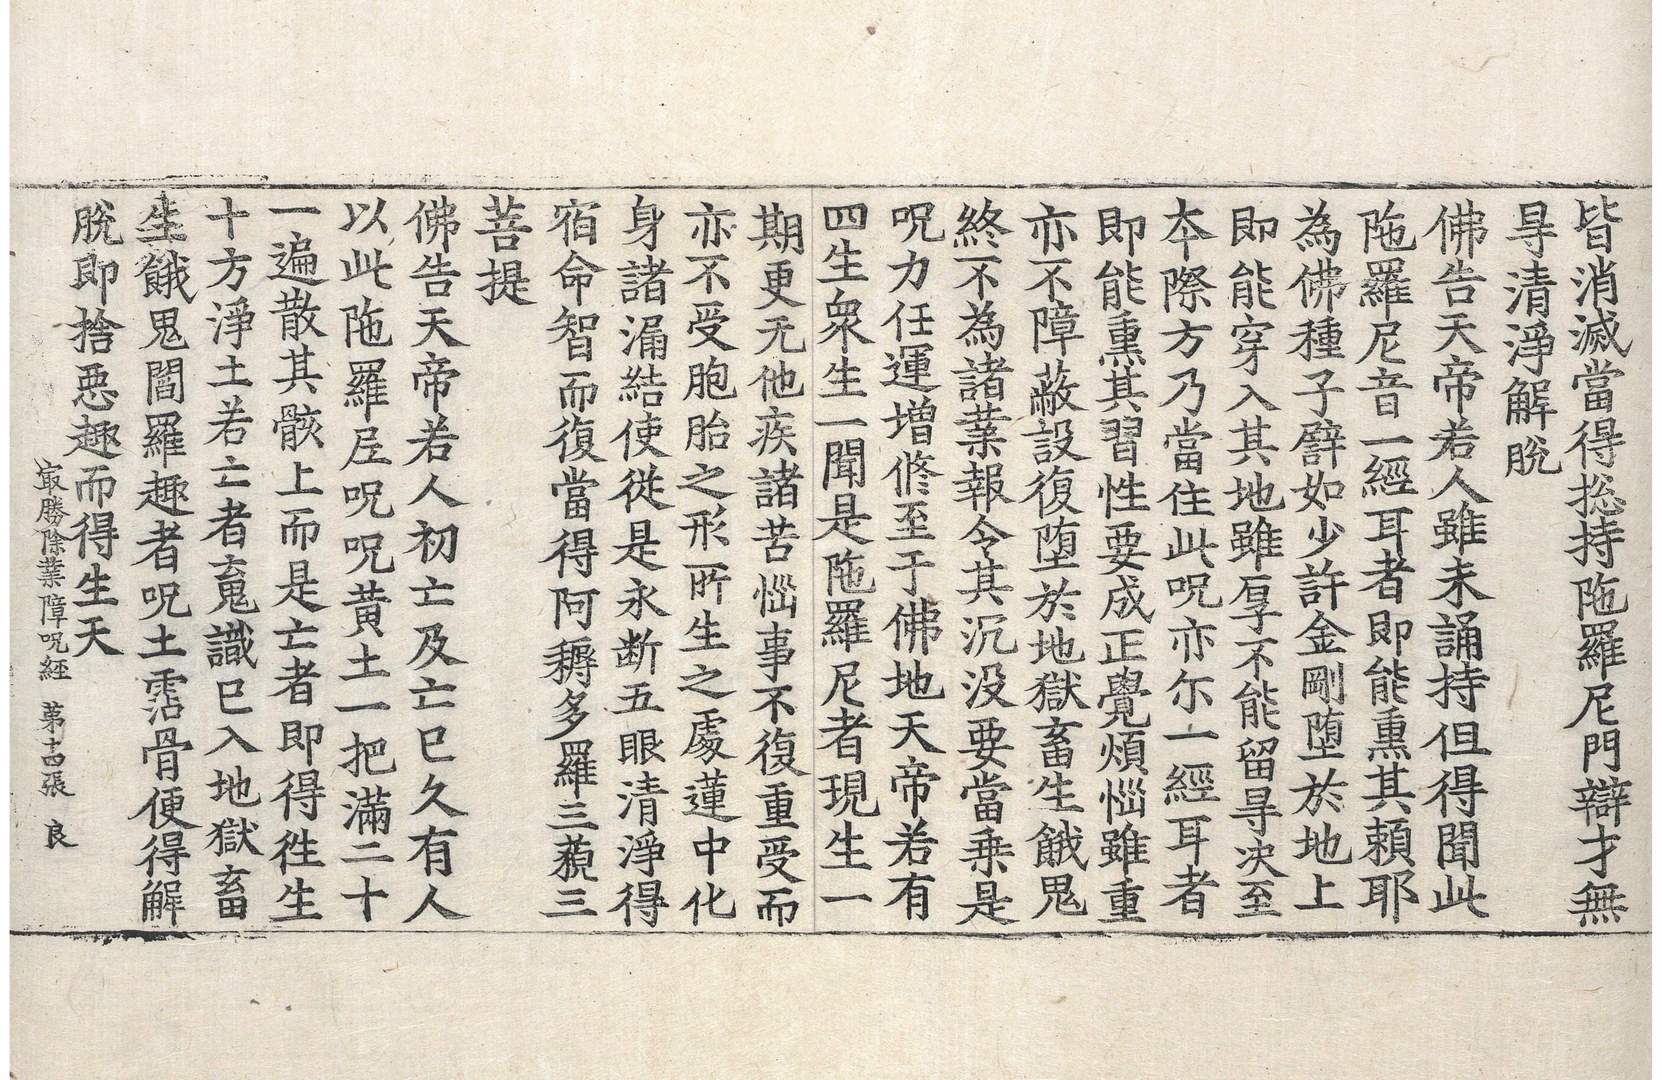 皆消滅當得捴持陁羅尼門辯才無
㝵清淨解脫
佛告天帝若人雖未誦持但得聞此
陁羅尼音一經耳者即能熏其賴耶
為佛種子譬如少許金剛墮於地上
即能穿入其地雖厚不能留㝵决至
夲際方乃當住此呪亦尓一經耳者
即能熏其習性要成正覺煩惱雖重
亦不障蔽設復墮於地獄畜生餓鬼
終不為諸業報令其沉没要當乗是
呪力任運增修至于佛地天帝若有
四生衆生一聞是陁羅尼者現生一
期更无他疾諸苦惱事不復重受而
亦不受胞胎之形所生之處蓮中化
身諸漏結使從是永断五眼清淨得
宿命智而復當得阿耨多羅三藐三
菩提
佛告天帝若人初亡及亡巳久有人
以此陁羅尼呪呪黄土一把滿二十
一遍散其骸上而是亡者即得徃生
十方淨土若亡者䰟識巳入地獄畜
生餓鬼閻羅趣者呪土霑骨便得解
脫即捨惡趣而得生天
㝡勝除業障呪經 苐十四張 良